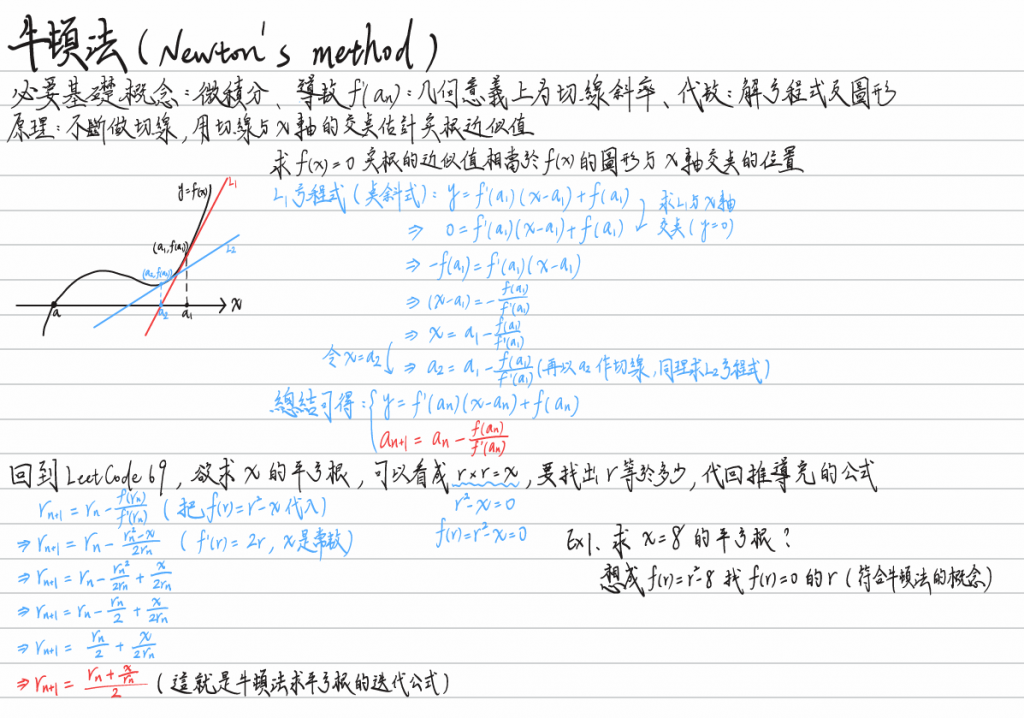 牛頓法(Newton's method)
必要基礎概念:微積分、導數f'(an):几何意義上为切線斜率、代數:解方程式及圖形
原理:不斷做切線,用切線与x軸的交点估計实根近似值
求f(x)=0实根的近似值相當於f(x)的圖形与x軸交点的位置
y=f(x)
L₁
(a₁,f(a₁))
L₂
(a₂,f(a₂))
a
a₂
a₁
x
L₁方程式(点斜式):y=f'(a₁)(x-a₁)+f(a₁)
求L₁与x軸
交点(y=0)
⇒ 0=f'(a₁)(x-a₁)+f(a₁)
⇒ -f(a₁)=f'(a₁)(x-a₁)
⇒ (x-a₁)=-f(a₁)/f'(a₁)
⇒ x=a₁-f(a₁)/f'(a₁)
令x=a₂
⇒ a₂=a₁-f(a₁)/f'(a₁)(再以a₂作切線,同理求L₂方程式)
總結可得:{y=f'(an)(x-an)+f(an)
an+1=an-f(an)/f'(an)
回到LeetCode 69,欲求x的平方根,可以看成r×r=x,要找出r等於多少,代回推導完的公式
r²-x=0
f(r)=r²-x=0
rn+1=rn-f(rn)/f'(rn) (把f(r)=r²-x代入)
⇒rn+1=rn-(rn²-x)/2rn (f'(r)=2r, x是常數)
⇒rn+1=rn-rn²/2rn+x/2rn
⇒rn+1=rn-rn/2+x/2rn
⇒rn+1=rn/2+x/2rn
⇒rn+1=(rn+x/rn)/2 (這就是牛頓法求平方根的迭代公式)
Ex1.求x=8的平方根?
想成f(r)=r²-8找f(r)=0的r(符合牛頓法的概念)